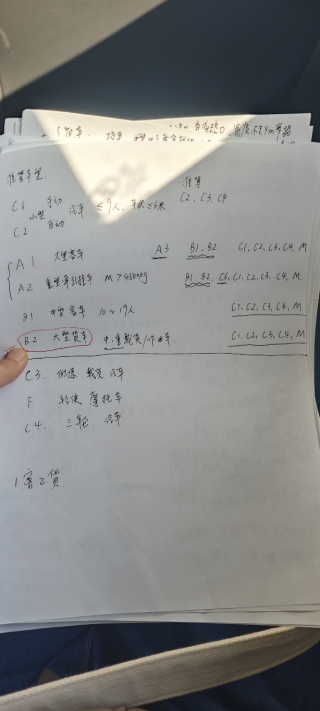 准驾车型
准驾
C1 手动
小型 汽车 ≤9人, 车长≤6米
C2, C3, C4
C2 自动
A1 大型客车 A3 B1. B2. C1, C2, C3, C4, M
A2 重型牵引挂车 M>4500kg B1 B2 C6, C1, C2, C3, C4, M
B1 中型客车 10~19人 C1. C2, C3, C4, M
B2 大型货车 中.重载货/作业车 C1, C2, C3, C4, M
C3. 低速 载货 汽车
F 轻便 摩托车
C4. 三轮 汽车
1客2货